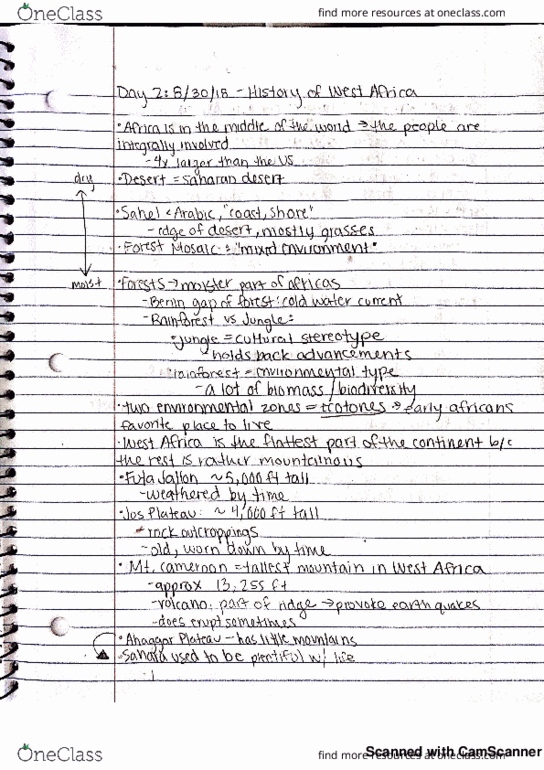 OneClass
find more resources at oneclass.com
Day 2: 8/30/18 - History of West Africa
• Africa is in the middle of the world → the people are
integrally involved
- 4x larger than the US
dry
• Desert = saharan desert
• Sahel < Arabic, "coast, shore"
- edge of desert, mostly grasses
• Forest Mosaic = "mixed environment"
moist
• Forests → moister part of africas
- Benin gap of forest: cold water current
- Rainforest vs Jungle:
• jungle = cultural stereotype
holds back advancements
• rainforest = environmental type
- a lot of biomass / biodiversity
• two environmental zones = ecotones → early africans
favorite place to live
• West Africa is the flattest part of the continent b/c
the rest is rather mountainous
• Futa Jallon ~5,000 ft tall
- weathered by time
• Jos Plateau: ~ 4,000 ft tall
- rock outcroppings
- old, worn down by time
• Mt. Cameroon = tallest mountain in West Africa
- approx 13,255 ft
- volcano, part of ridge → provoke earthquakes
- does erupt sometimes
• Ahaggar Plateau - has little mountains
• Sahara used to be plentiful w/ life
OneClass
find more resources at oneclass.com
Scanned with CamScanner